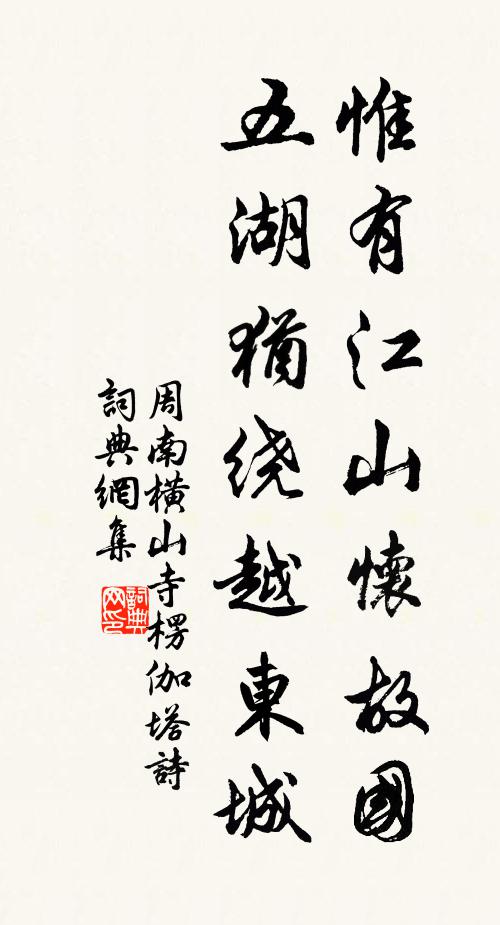 惟有江山懷故國
五湖猶绕越東城
周南橫山寺楞伽塔詩
詞典網集
詞典网印